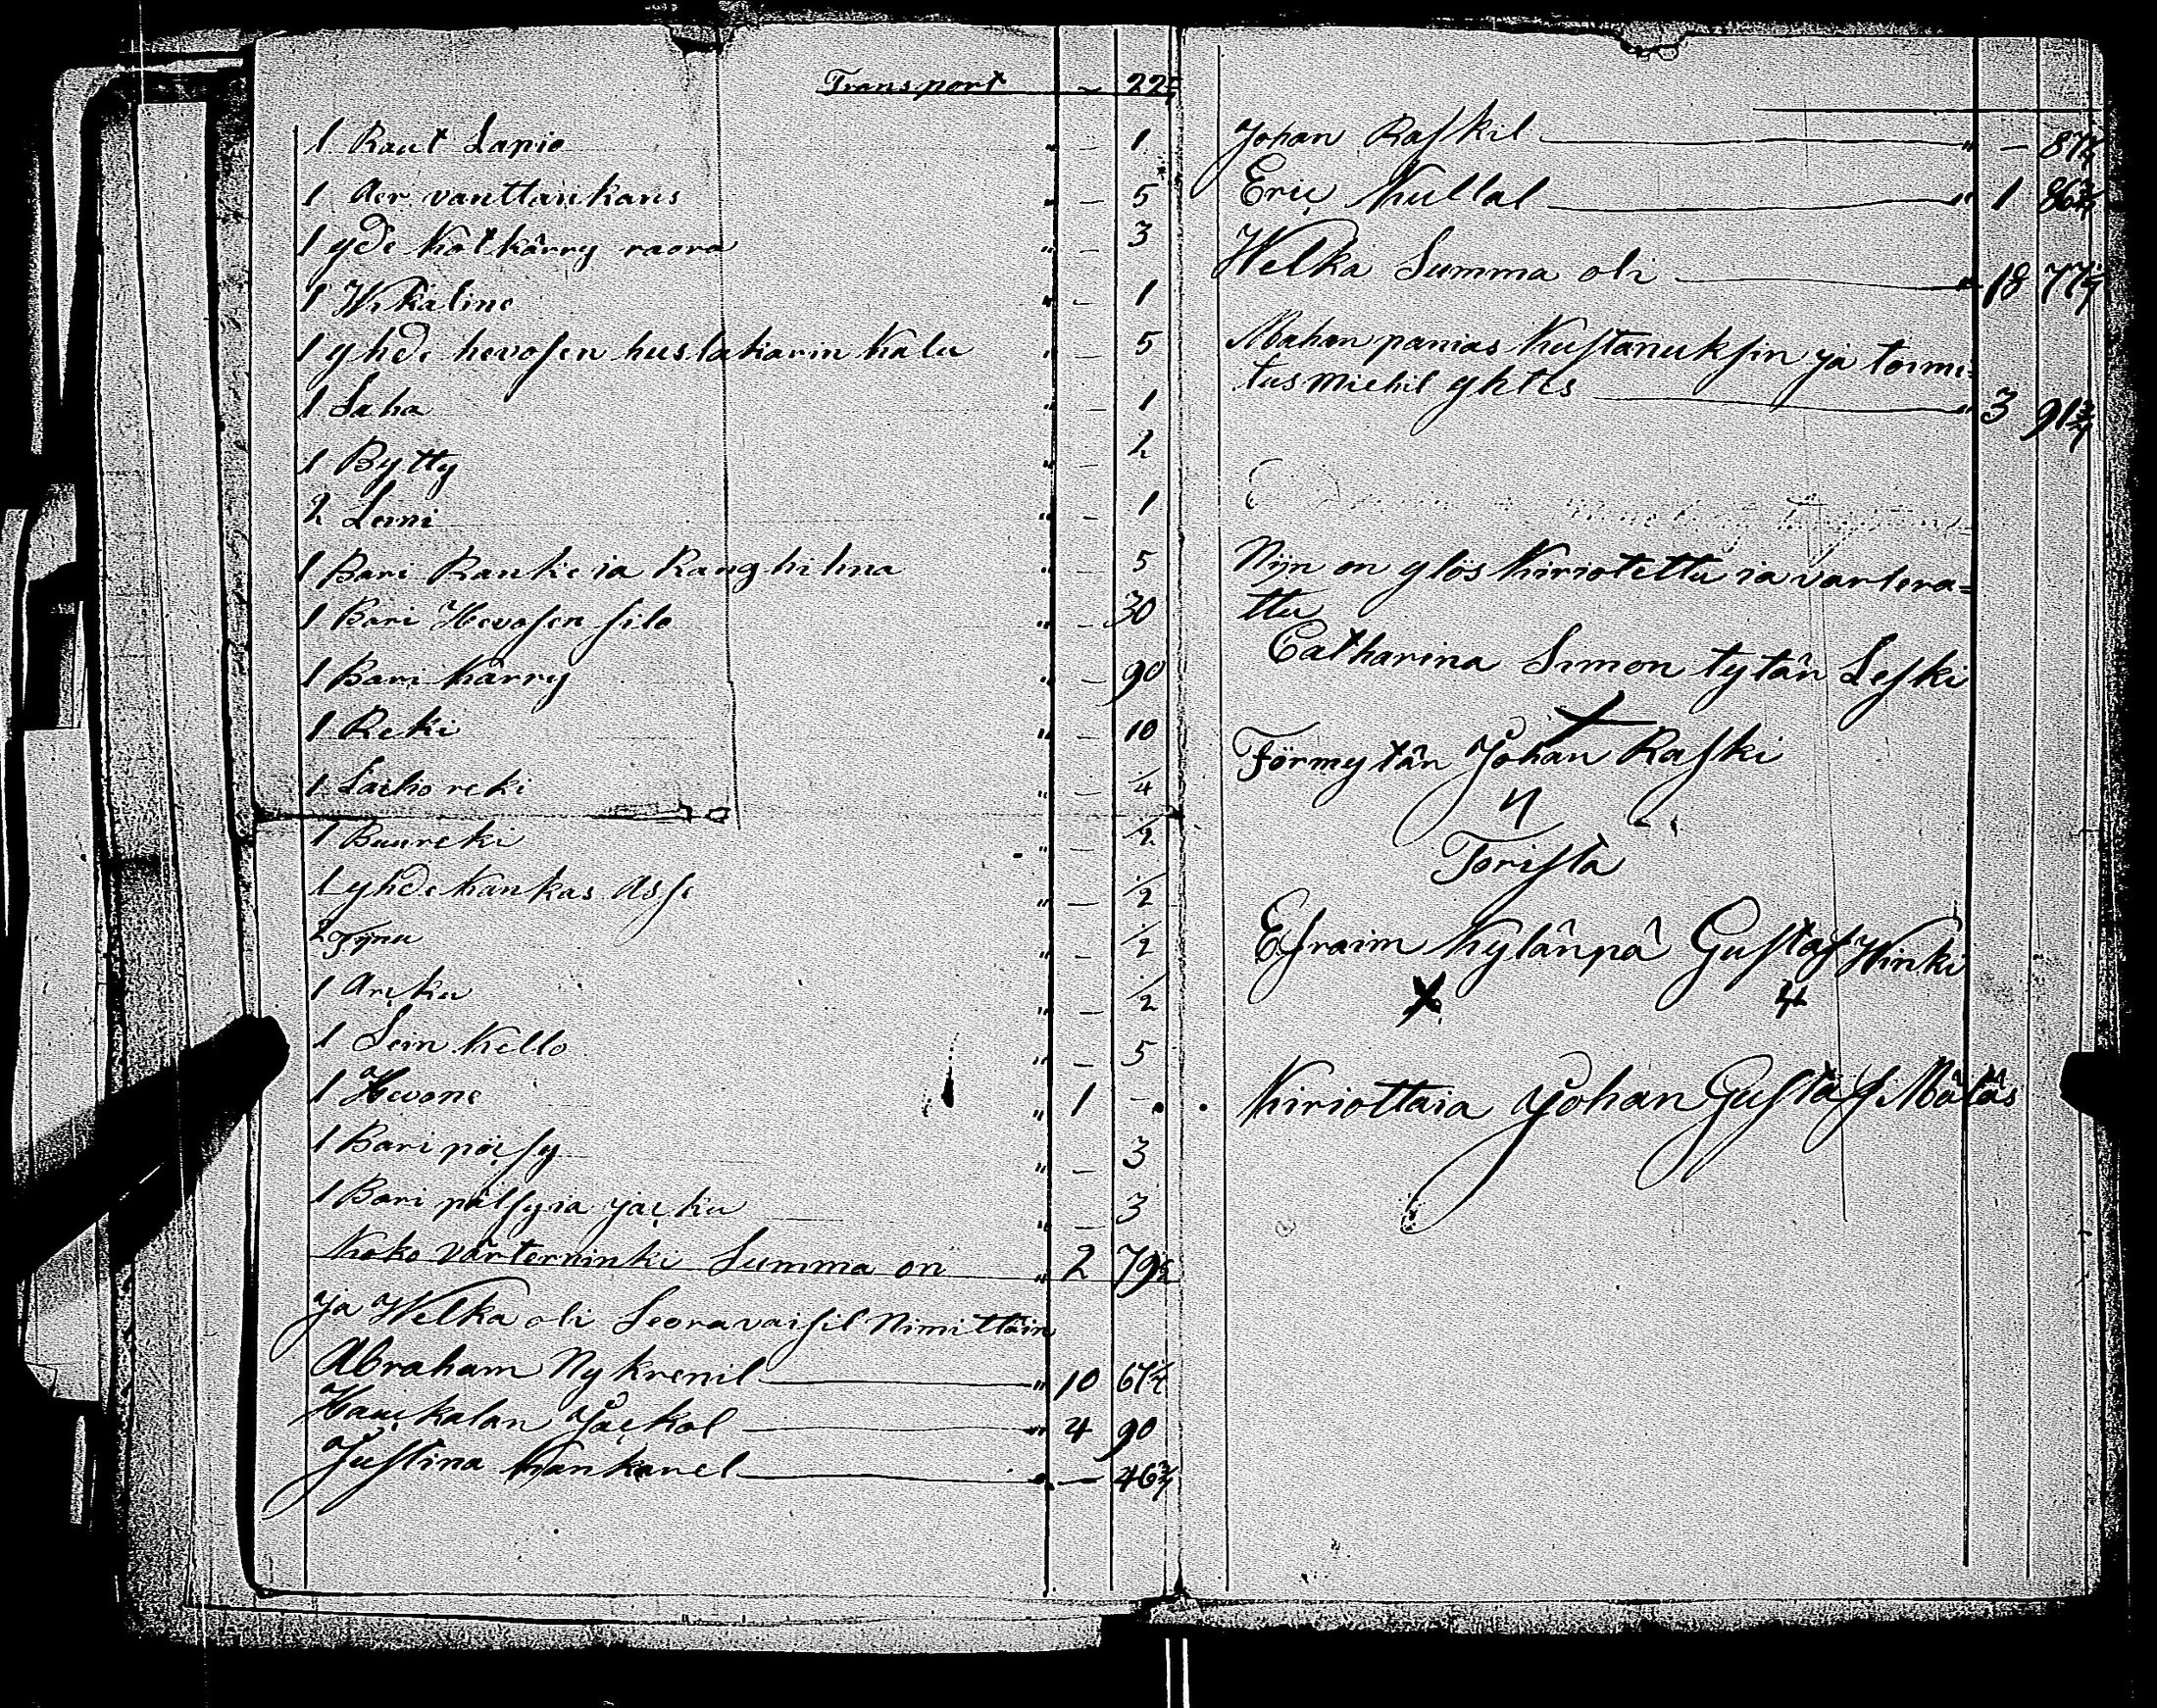 Transport - 22
1 Raut Lapio " - 1
1 Aer vanttaukans " - 5
1 yde Kotkärry raora " - 3
1 Wikatine " - 1
1 yhde hevosen huslakarin Kalu " - 5
1 Saha " - 1
1 Bytty " - 2
2 Leini " - 1
1 Bari Ranke ia Rang hihna " - 5
1 Bari Hevosen silo " - 30
1 Bari Kärry " - 90
1 Reki " - 10
1 Laihoreki " - 1/4
1 Buureki " - 1/2
1 yhde Kankas Asse " - 1/2
2 Tynu " - 1/2
1 Arcku " - 1/2
1 Sein Kello " - 5
1 Hevone " 1 -
1 Bari pöxsy " - 3
1 Bari pälsyia jacku " - 3
Koko värterninki Summa on " 2 79
ja Welka oli Seoravaisil Nimittäin
Abraham Nykrenil " 10 67 1/4
Hauckalan Jackol " 4 90
Justina Kankanel " - 46 3/4
Johan Raskil " - 87
Eric Kullal " 1 86
Welka Summa oli " 18 77 1/4
Mahan panias Kustanuksin ja toimi=
tus miehil yhtes " 3 91 3/4
Nijn on ylös Kiriotettu ia vartera=
ttu
Catharina Simon tytän Leski
Förmytän Johan Raski
Torista
Efraim Kylänpä Gustaf Winki
Kiriottaia Johan Gustaf Mätäs